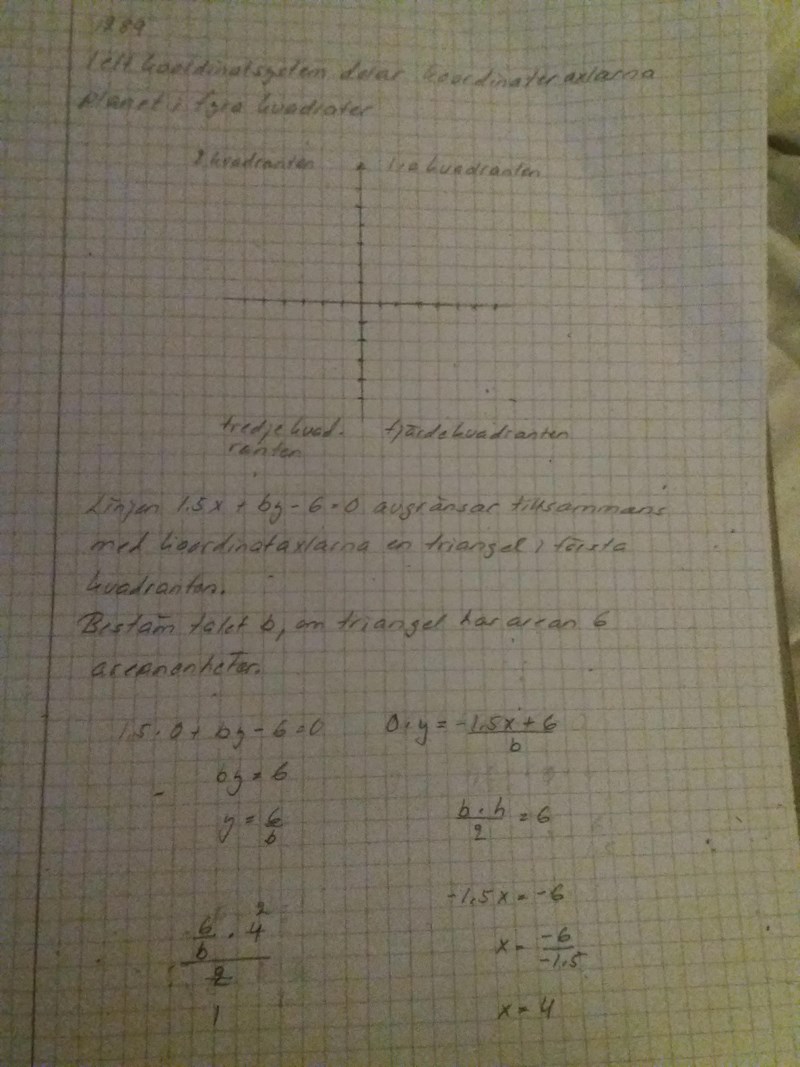 1289
I ett koordinatsystem delar koordinateraxlarna
planet i fyra kvadrater
2 kvadranten 1:a kvadranten
tredje kvad- fjärde kvadranten
ranten
Linjen 1.5x + by - 6 = 0 avgränsar tillsammans
med koordinataxlarna en triangel i första
kvadranten.
Bestäm talet b, om triangel har arean 6
1.5 · 0 + by - 6 = 0 0 · y = -1.5x + 6 / b
by = 6
y = 6/b b · h / 2 = 6
-1.5x = -6
6/b · 4 2 / 2 x = -6 / -1.5
1 x = 4